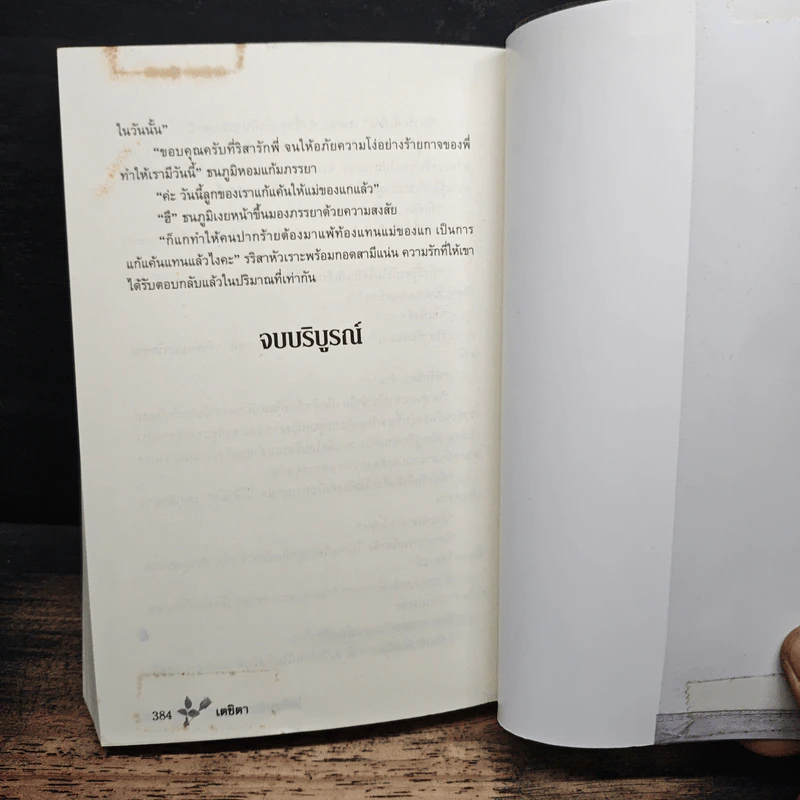 ในวันนั้น”
“ขอบคุณครับที่ริสารักพี่ จนให้อภัยความโง่อย่างร้ายกาจของพี่
ทำให้เรามีวันนี้” ธนภูมิหอมแก้มภรรยา
“ค่ะ วันนี้ลูกของเราแก้แค้นให้แม่ของแกแล้ว”
“ฮึ” ธนภูมิเงยหน้าขึ้นมองภรรยาด้วยความสงสัย
“ก็แกทำให้คนปากร้ายต้องมาแพ้ท้องแทนแม่ของแก เป็นการ
แก้แค้นแทนแล้วไงคะ” รริสาหัวเราะพร้อมกอดสามีแน่น ความรักที่ให้เขา
ได้รับตอบกลับแล้วในปริมาณที่เท่ากัน
จบบริบูรณ์
384 เตชิตา